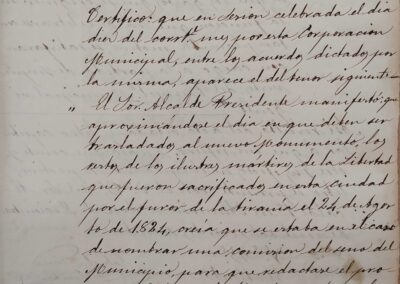 Certifico: que en sesión celebrada el día
diez del corrte. mes por esta Corporación
Municipal, entre los acuerdos dictados por
la misma, aparece el del tenor siguiente=
„ El Sor. Alcalde Presidente manifestó: que
aproximándose el día en que deben ser
trasladados al nuevo Monumento, los
restos de los ilustres mártires de la Libertad
que fueron sacrificados en esta ciudad
por el furor de la tiranía el 24 de Agos
to de 1824, creía que se estaba en el caso
de nombrar una comisión del seno del
Municipio, para que redactase el pro-